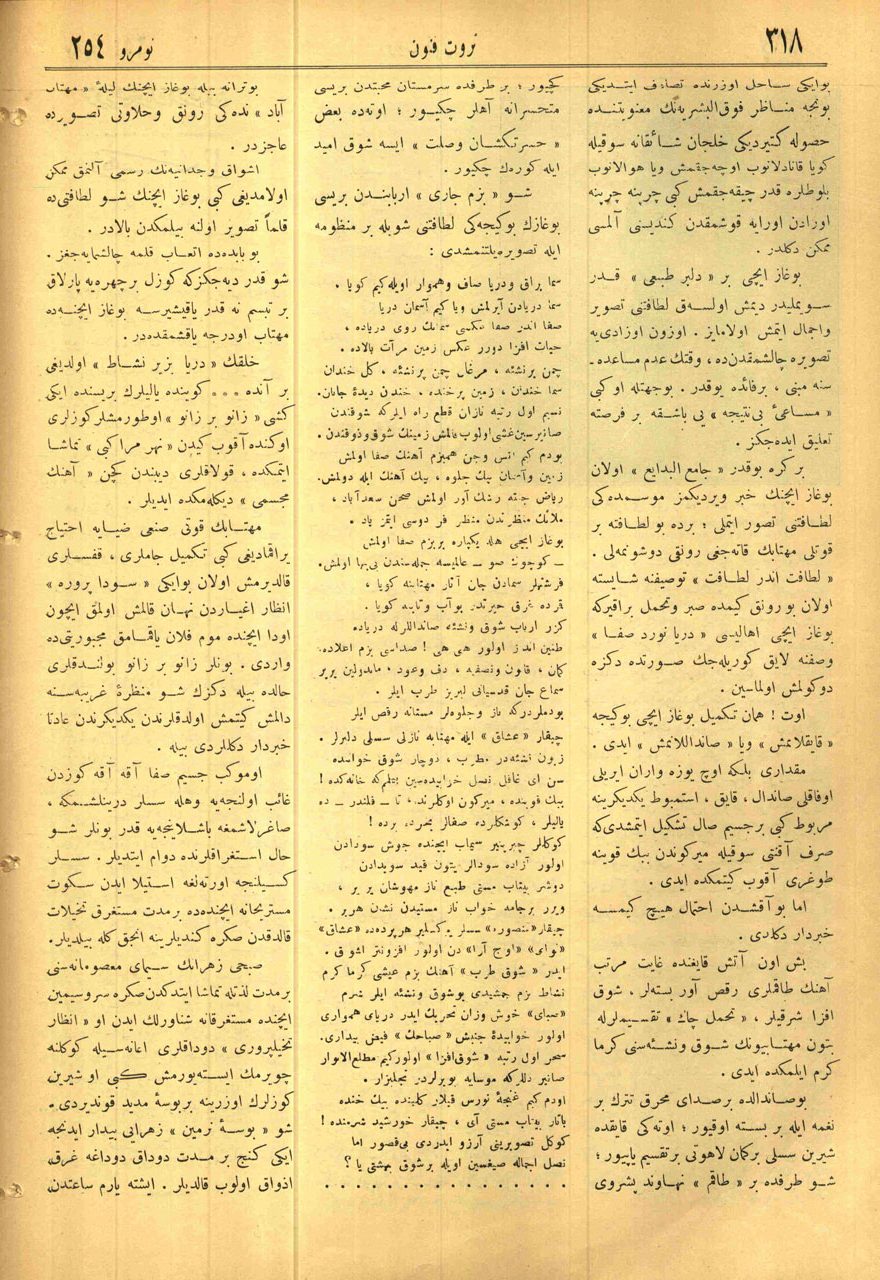 ٣١٨
ثروت فنون
نومرو ٢٥٤
بوایكی ساحل اوزرنده تصادف ایتدیكی
بونجه مناظر فوق‌البشریه‌نك معنویتنده
حصوله كتیردیكی خلجان شائقانه سوقیله
كویا قنادلانوب اوچه‌جقمش ویا هوالانوب
بلوطلره قدر چیقه‌جقمش كبی چرپنه چرپنه
اورادن اورایه قوشمقدن كندیسنی آلمسی
ممكن دكلدر .
بوغاز ایچی بر « دلبر طبیعی » قدر
سویملیدر دیمش اولسه‌ق لطافتنی تصویر
واجمال ایتمش اولامایز . اوزون اوزادی‌یه
تصویره چالشمقدن‌ده ، وقتك عدم مساعده‌ـ
سنه مبنی ، برفائده یوقدر . بوجهتله او كبی
« مساعیٔ بی‌نتیجه » یی باشقه بر فرصته
تعلیق ایده‌جكز .
بر كره بوقدر « جامع البدایع » اولان
بوغاز ایچنك خبر ویردیكمز موسمده‌كی
لطافتنی تصور ایتملی ؛ برده بو لطافته بر
قوتلی مهتابك قاته‌جغی رونقی دوشونمه‌لی .
« لطافت اندر لطافت » توصیفنه شایسته
اولان بو رونق كیمده صبر وتحمل براقیركه
بوغاز ایچی اهالیسی « دریا نورد صفا »
وصفنه لایق كوریله‌جك صورتده دكزه
دوكولمش اولماسین .
اوت ! همان تكمیل بوغاز ایچی بوكیجه
« قایقلانمش » ویا « صانداللانمش » ایدی .
مقداری بلكه اوچ یوزه واران ایریلی
اوفاقلی صاندال ، قایق ، استمبوط یكدیكرینه
مربوط كبی برجسیم صال تشكیل ایتمشدی‌كه
صرف آقنتی سوقیله میركوندن ببك قوینه
طوغری آقوب كیتمكده ایدی .
اما بو آقشدن احتمال هیچ كیمسه
خبردار دكلدی .
بش اون آتش قایغنده غایت مرتب
آهنك طاقملری رقص آور بسته‌لر ، شوق
افزا شرقیلر ، « تحمل چاك » تقسیملرله
بتون مهتابیونك شوق ونشئه‌سنی كرما
كرم ایلمكده ایدی .
بوصاندالده برصدای محرق تترك بر
نغمه ایله بر بسته اوقیور ؛ اوته‌كی قایقده
شیرین سسلی بركمان لاهوتی برتقسیم یاپیور ؛
شو طرفده بر « طاقم » نهاوند پشروی
كچیور ؛ بر طرفده سرمستان محبتدن بریسی
متحسرانه آهلر چكیور ؛ اوته‌ده بعض
« حسرتكشان وصلت » ایسه شوق امید
ایله كوره‌ك چكیور .
شو « بزم جاری » اربابندن بریسی
بوغازك بوكیجه‌كی لطافتنی شویله بر منظومه
ایله تصویره یلتنمشدی :
سما براق ودریا صاف وهموار اویله‌كیم كویا .
سما دریادن آیرلمش ویا كیم آسمان دریا
صفا اندر صفا عكسی سمانك روی دریاده ،
حیات افزا دورر عكس زمین مرآت بالاده .
چمن پرنشئه ، مرغان چمن پرنشئه ، كل خندان
سما خندان ، زمین پرخنده . خندن دیدهٔ جانان.
نسیم اول رتبه نازان قطع راه ایلركه شوقندن
صانیرسین‌غشی‌اولوب‌قالمش زمینك شوق‌وذوقندن .
بودم كیم انس وجن همبزم آهنك صفا اولمش
زمین وآسمان بیك جلوه ، بیك آهنك ایله دولمش.
ریاض جنته رشك آور اولمش صحن سعدآباد ،
ملائك منظرندن منظر فردوسی ایتمز یاد .
بوغاز ایچی هله یكپاره بربزم صفا اولمش
ـ كوچوك صو ـ عالمیسه جمله‌سندن بی‌بها اولمش.
فرشته‌لر سمادن جان آثار مهتابنه كویا ،
قرده غرق حیرتدر بوآب وتابه كویا .
كزر ارباب شوق ونشئه صانداللرله دریاده
طنین انداز اولور هی هی ! صداسی بزم اعلاده.
كمان ، قانون ونصفیه ، دف وعود ، ماندولین یریر
سماع جان قدسیانی لبریز طرب ایلر .
بودملردركه ناز وجلوه‌لر مستانه رقص ایلر
چیقار « عشاق » ایله مهتابه نازلی سسلی دلبرلر .
ببك قوینده ، میركون اوكلرنده ، تا ـ قلندر ـ ده
یالیلر ، كوشكلرده صفالر بحرده برده !
كوكللر چیرپینیر سیماب ایچنده جوش سودادن
اولور آزاده سودالر بتون قید سویدادن
دوشر بیتاب مستی طبع ناز مهوشان یر یر ،
ویرر برجامه خواب ناز مستیدن نشان هربر .
چیقار«منصور» سسلر یوكسلیر هرپرده‌ده «عشاق»
«نوای» «اوج آرا» دن اولور افزونتر اشواق .
ایدر « شوق طرب » آهنك بزم عیشی كرما كرم
نشاط بزم جمشیدی بوشوق ونشئه ایلر شرم
«صبای» خوش وزان تحریك ایدر دریای همواری
اولور خوابیدهٔ جنبش « صباحك » فیض بیداری.
سحر اول رتبه « شوق‌افزا » اولوركیم مطلع‌الانوار
صانیر دللركه موسایه بویرلردر تجلیزار .
اودم كیم غنچهٔ نورس قیلار كلبنده بیك خنده
یاتار بیتاب مستی آی ، چیقار خورشید شرمنده !
كوكل تصویرینی آرزو ایدردی بی‌قصور اما
نصل اجماله صیغسین اویله برشوق بهشتی یا ؟
. . . . . . . . . . . . . . .
بوترانه بیله بوغاز ایچنك لیلهٔ « مهتاب
آباد » نده‌كی رونق وحلاوتی تصویرده
عاجزدر .
اشواق وجدانیه‌نك رسمی آلنمق ممكن
اولامدیغی كبی بوغاز ایچنك شو لطافتی‌ده
قلماً تصویر اولنه بیلمكدن بالادر .
بو بابده‌ده اتعاب قلمه چالشمایه‌جغز .
شو قدر دیه‌جكزكه كوزل برچهره‌یه پارلاق
بر تبسم نه قدر یاقیشیرسه بوغاز ایچنه‌ده
مهتاب اودرجه یاقشمقده‌در .
خلقك « دریا بزیر نشاط » اولدیغی
بر آنده ٠٠٠ كوینده یالیلرك بریسنده ایكی
كشی « زانو بر زانو » اوطورمشلركوزلری
اوكنده آقوب كیدن « نهر مراكبی » تماشا
ایتمكده ، قولاقلری دیبندن كچن « آهنك
مجسمی » دیكله‌مكده ایدیلر .
مهتابك قوتی صنعی ضیایه احتیاج
براقمادیغی كبی تكمیل جاملری ، قفسلری
قالدیرمش اولان بوایكی « سودا پروره »
انظار اغیاردن نهان قالمش اولمق ایچون
اودا ایچنده موم فلان یاقمامق مجبوریتی‌ده
واردی . بونلر زانو بر زانو بولندقلری
حالده بیله دكزك شو منظرهٔ غریبه‌سنه
دالمش كیتمش اولدقلرندن یكدیكرندن عادتا
خبردار دكللردی بیله .
اوموكب جسیم صفا آقه آقه كوزدن
غائب اولنجه‌یه وهله سسلر درینلشمكه ،
صاغرلاشمغه باشلاینجه‌یه قدر بونلر شو
حال استغراقلرنده دوام ایتدیلر . سسلر
كسیلنجه اورته‌لغه استیلا ایدن سكوت
مستریحانه ایچنده‌ده برمدت مستغرق تخیلات
قالدقدن صكره كندیلرینه انجق كله بیلدیلر.
صبحی زهرانك سیمای معصومانه‌سنی
برمدت لذتله تماشا ایتدكدن‌صكره سروسیمین
ایچنده مستغرقانه شناورلك ایدن او « انظار
تخیلپروری » دوداقلری اعانه‌سیله كوكلنه
چویرمك ایسته‌یورمش كبی او شیرین
كوزلرك اوزرینه بربوسهٔ مدید قوندیردی.
شو « بوسهٔ نرمین » زهرایی بیدار ایدنجه
ایكی كنج بر مدت دوداق دوداغه غرق
اذواق اولوب قالدیلر . ایشته یارم ساعتدن